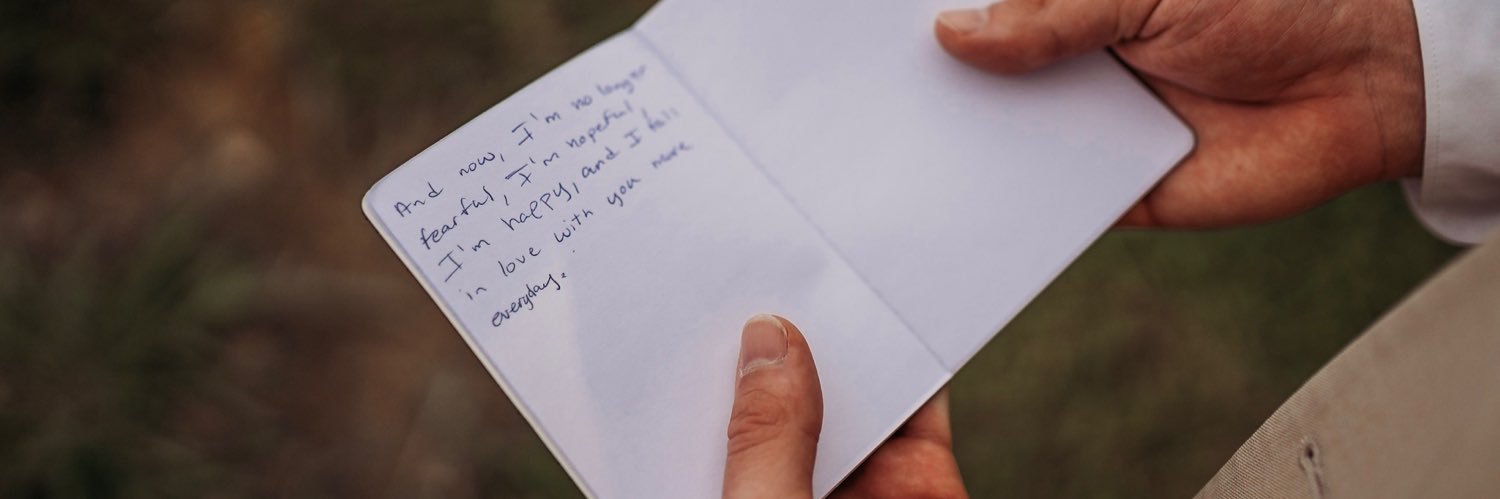 And now, I'm no longer
fearful, I'm hopeful,
I'm happy, and I fall
in love with you more
everyday.